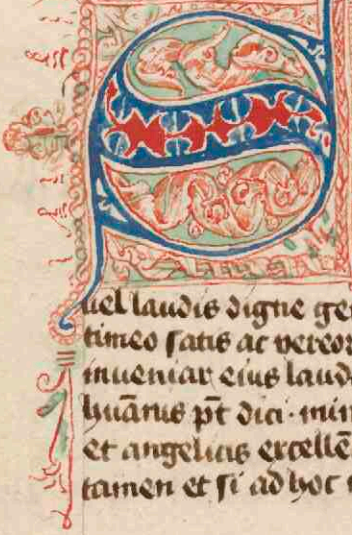 S
uel laudis digne ge
timeo satis ac vereor
inueniar eius laud
huānis pt̄ dici · min
et angelicis excellē
tamen et si ad hoc